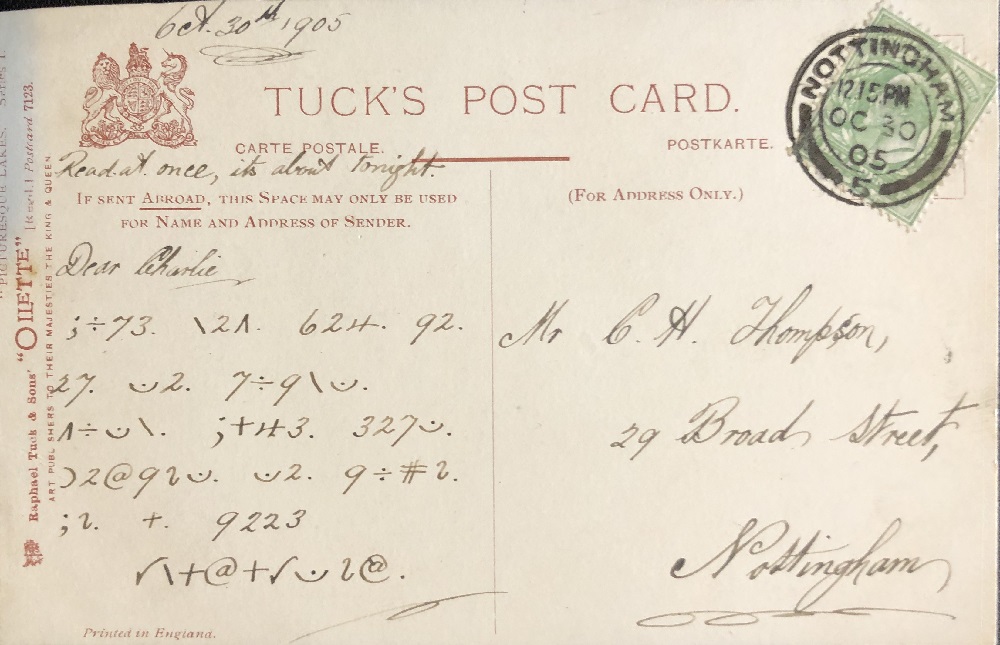 Oct. 30th 1905
TUCK'S POST CARD.
CARTE POSTALE.
POSTKARTE.
Read at once, its about tonight.
IF SENT ABROAD, THIS SPACE MAY ONLY BE USED
FOR NAME AND ADDRESS OF SENDER.
(FOR ADDRESS ONLY.)
NOTTINGHAM
12.15PM
OC 30
05
5
Dear Charlie
;÷73. \2Λ. 624. 92.
27. ن2. 7÷9\ن.
Λ÷ن\. ;+43. 327ن.
)2@9ઽن. ن2. 9÷#ઽ.
;ઽ. +. 9223
√\+@+√نઽ@.
Mr C. H. Thompson,
29 Broad Street,
Nottingham
"PICTURESQUE LAKES.
Raphael Tuck & Sons' "OILETTE" [Regd.] Postcard 7123.
ART PUBLISHERS TO THEIR MAJESTIES THE KING & QUEEN.
Printed in England.